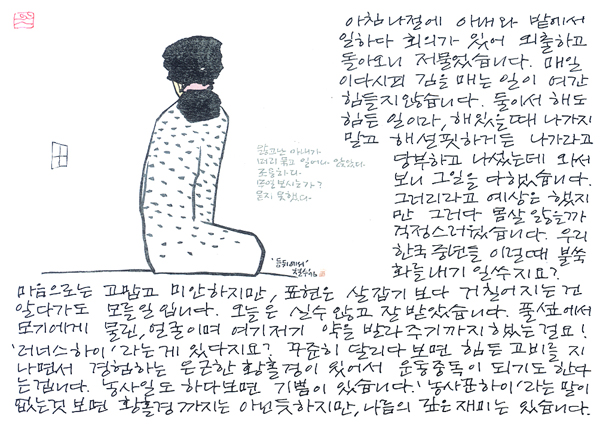 아침나절에 아내와 밭에서
일하다 회의가 있어 외출하고
돌아오니 저물었습니다. 매일
이다시피 김을 매는 일이 여간
힘들지 않습니다. 둘이서 해도
힘든 일이라, 해 있을 때 나가지
말고 해 설핏하거든 나가라고
당부하고 나섰는데 와서
보니 그 일을 다 했습니다.
그러리라고 예상은 했지
만 그러다 몸살 앓을까
걱정스러웠습니다. 우리
한국 중년들 이럴 때 불쑥
화를 내기 일쑤지요?
마음으로는 고맙고 미안하지만, 표현은 살갑기보다 거칠어지는 건
알다가도 모를 일입니다. 오늘은 실수 않고 잘 받았습니다. 풀섶에서
모기에게 물린, 얼굴이며 여기저기 약을 발라주기까지 했는 걸요!
'러너스 하이'라는 게 있다지요? 꾸준히 달리다 보면 힘든 고비를 지
나면서 경험하는 은근한 황홀경이 있어서 운동중독이 되기도 한다
는 겁니다. 농사일도 하다보면 기쁨이 있습니다. '농사꾼 하이'라는 말이
없는 것 보면 황홀경까지는 아닌 듯하지만, 나름의 깊은 재미는 있습니다.
아내가
머리 묶고 일어나 앉았다.
조용하다.
묻지 못했다.